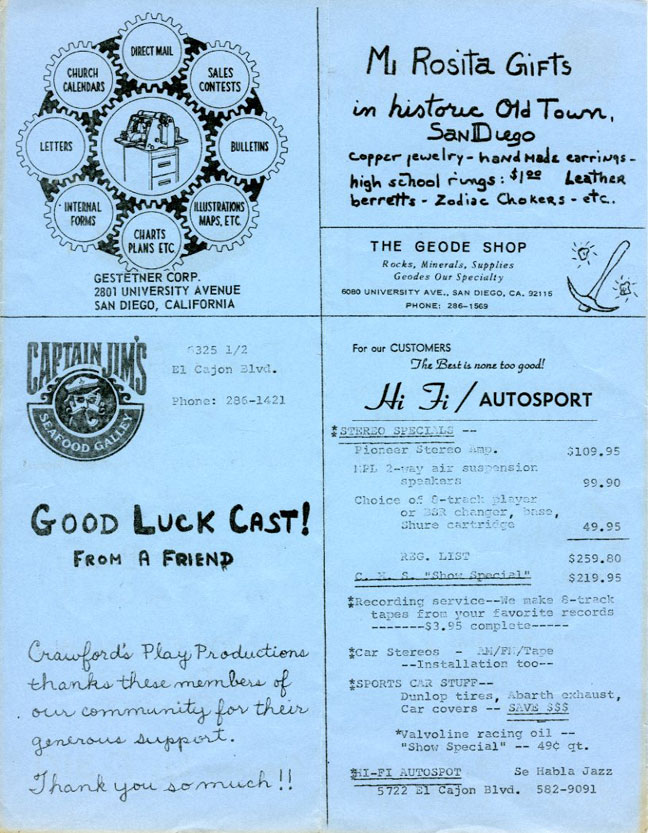 DIRECT MAIL
CHURCH CALENDARS
SALES CONTESTS
LETTERS
BULLETINS
INTERNAL FORMS
ILLUSTRATIONS MAPS, ETC.
CHARTS PLANS ETC
GESTETNER CORP.
2801 UNIVERSITY AVENUE
SAN DIEGO, CALIFORNIA
Mi Rosita Gifts
in historic Old Town,
San Diego
copper jewelry - handmade earrings -
high school rings: $1.00 Leather
berretts - Zodiac Chokers - etc.
THE GEODE SHOP
Rocks, Minerals, Supplies
Geodes Our Specialty
6080 UNIVERSITY AVE., SAN DIEGO, CA. 92115
PHONE: 286-1569
CAPTAIN JIM'S
SEAFOOD GALLEY
6325 1/2
El Cajon Blvd.
Phone: 286-1421
GOOD LUCK CAST!
FROM A FRIEND
Crawford's Play Productions
thanks these members of
our community for their
generous support.
Thank you so much!!
For our CUSTOMERS
The Best is none too good!
Hi Fi/AUTOSPORT
*STEREO SPECIALS --
Pioneer Stereo Amp. $109.95
2-way air suspension
speakers 99.90
Choice of 8-track player
or BSR changer, base,
Shure cartridge 49.95
REG. LIST $259.80
C. M. S. "Show Special" $219.95
*Recording service--We make 8-track
tapes from your favorite records
-------$3.95 complete-----
*Car Stereos - AM/FM/Tape
--Installation too--
*SPORTS CAR STUFF--
Dunlop tires, Abarth exhaust,
Car covers -- SAVE $$$
*Valvoline racing oil --
"Show Special" -- 49¢ qt.
*HI-FI AUTOSPOT Se Habla Jazz
5722 El Cajon Blvd. 582-9091